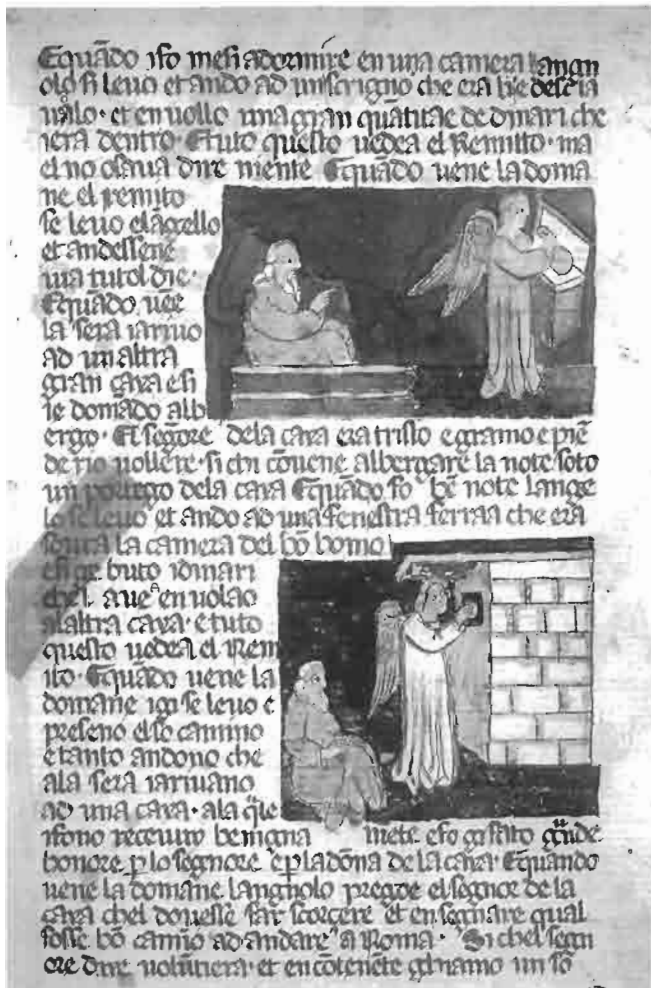 Equãdo ifo mesi adormire en una camera langn
olo si leuo et ando ad un scrigno che era bñ e
uolo · et en uollo una gran quãtitae de dinari che
iera dentro · Etuto questo uedea el Remito · ma
el no osaua dire niente Equãdo uene la doma
ne el remito
se leuo elagnello
et andessene
uia tutol die ·
Equãdo uẽe
la sera iariuo
ad un altra
gran caxa esi
ie domãdo alb
ergo · El segnore dela caxa era tristo e gramo e piẽ
de rio uollere · si chi cõuene albergare la note soto
un portego dela caxa Equãdo fo bẽ note lange
lo se leuo et ando ad una fenestra ferraa che era
soura la camera del bõ homo
esi ge buto idinari
chel auea en uolao
alaltra caxa · e tuto
questo uedea el Rem
ito · Equãdo uene la
domane igi se leuo e
preseno elso camino
e tanto andono che
ala sera iariuano
ad una caxa · ala q̃le
ifono receuuto benigna mẽte efo gi fato grãde
honore p lo segnore e p la dõna de la caxa · Equando
uene la domane langnolo pregoe el segnor de la
caxa chel douesse far scorcere et en segnare qual
fosse bõ camio ad andare a Roma · Si chel segn
ore dixe uolũtiera · et en cõtenẽte ghiamo un so